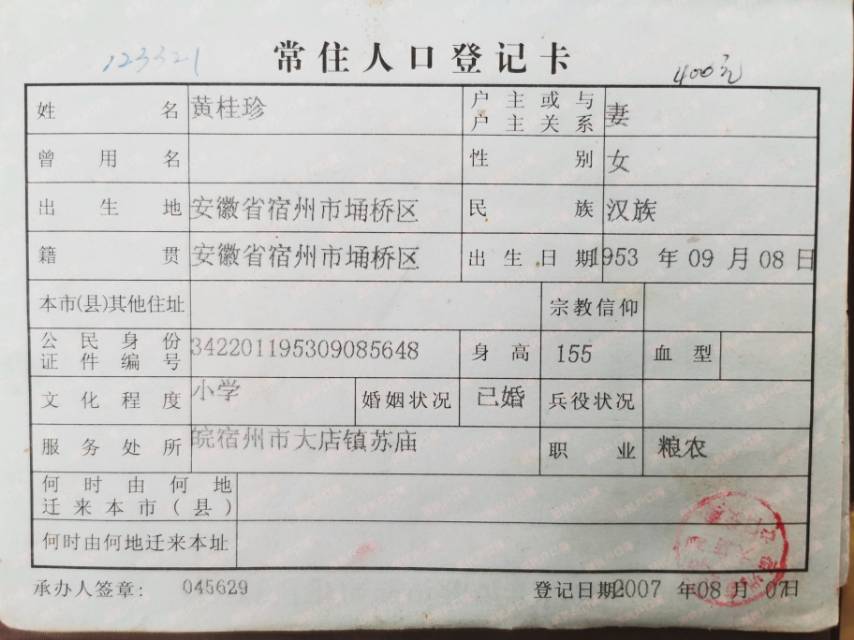 123321
常住人口登记卡
400元
姓名 黄桂珍 户主或与户主关系 妻
曾用名 性别 女
出生地 安徽省宿州市埇桥区 民族 汉族
籍贯 安徽省宿州市埇桥区 出生日期 1953 年 09 月 08 日
本市(县)其他住址 宗教信仰
公民身份证件编号 342201195309085648 身高 155 血型
文化程度 小学 婚姻状况 已婚 兵役状况
服务处所 皖宿州市大店镇苏庙 职业 粮农
何时由何地迁来本市(县)
何时由何地迁来本址
承办人签章: 045629 登记日期 2007 年 08 月 07 日